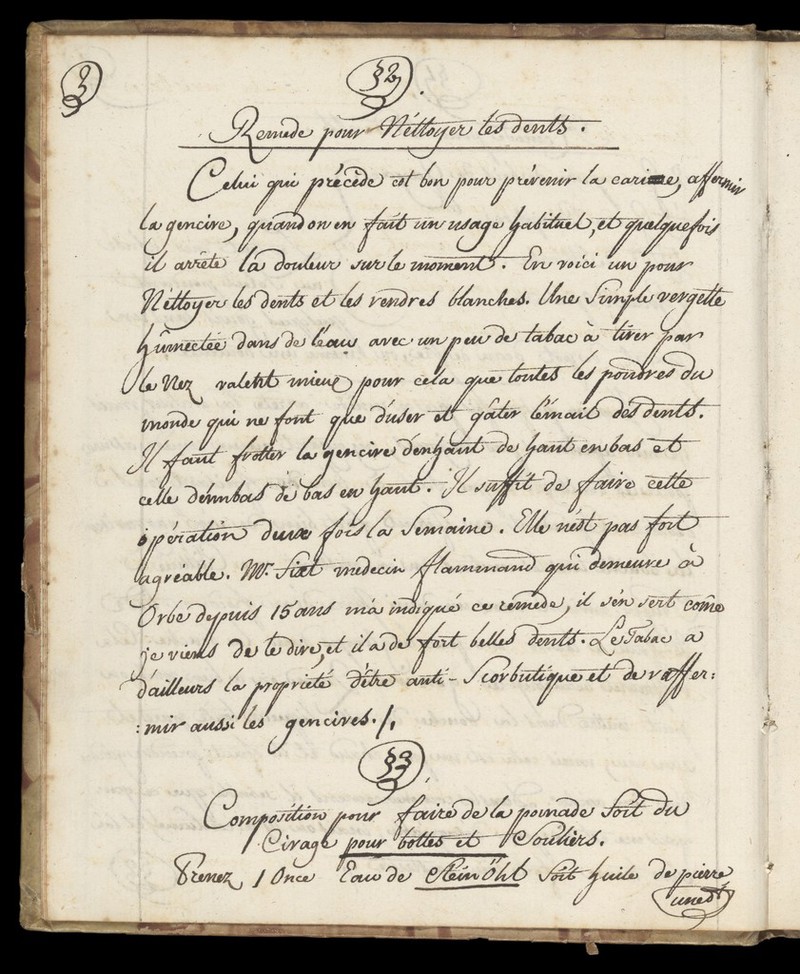 3
§2.
Remede pour Néttoyer les dents.
Celui qui précède est bon pour prévenir la carie, affermir
la gencive, quand on en fait un usage habituel, et quelquefois
il arrête la douleur sur le moment. En voici un pour
Néttoyer les dents et les rendres blanches. Une Simple vergette
hûmectée dans de l'eau avec un peu de tabac à tirer par
le Nez valent mieux pour cela que toutes les poudres du
monde qui ne font que d'user et gâter l'émail des dents.
Il faut frotter la gencive d'enhaut de haut en bas et
celle d'émbas de bas en haut. Il suffit de faire cette
opération deux fois la Semaine. Elle n'est pas fort
agréable. Mr. medecin flammand qui demeure à
Orbe depuis 15 ans m'a indiqué ce remède, il s'en sert come
je viens de te dire, et il a de fort belles dents. Le Tabac a
d'ailleurs la proprieté d'être anti-Scorbutique et de raffer:
:mir aussi les gencives./.
§3
Composition pour faire de la pomade Soit du
Cirage pour bottes et Souliers.
Prenez 1 Once Eau de Steinöhl Soit huile de pierre
une